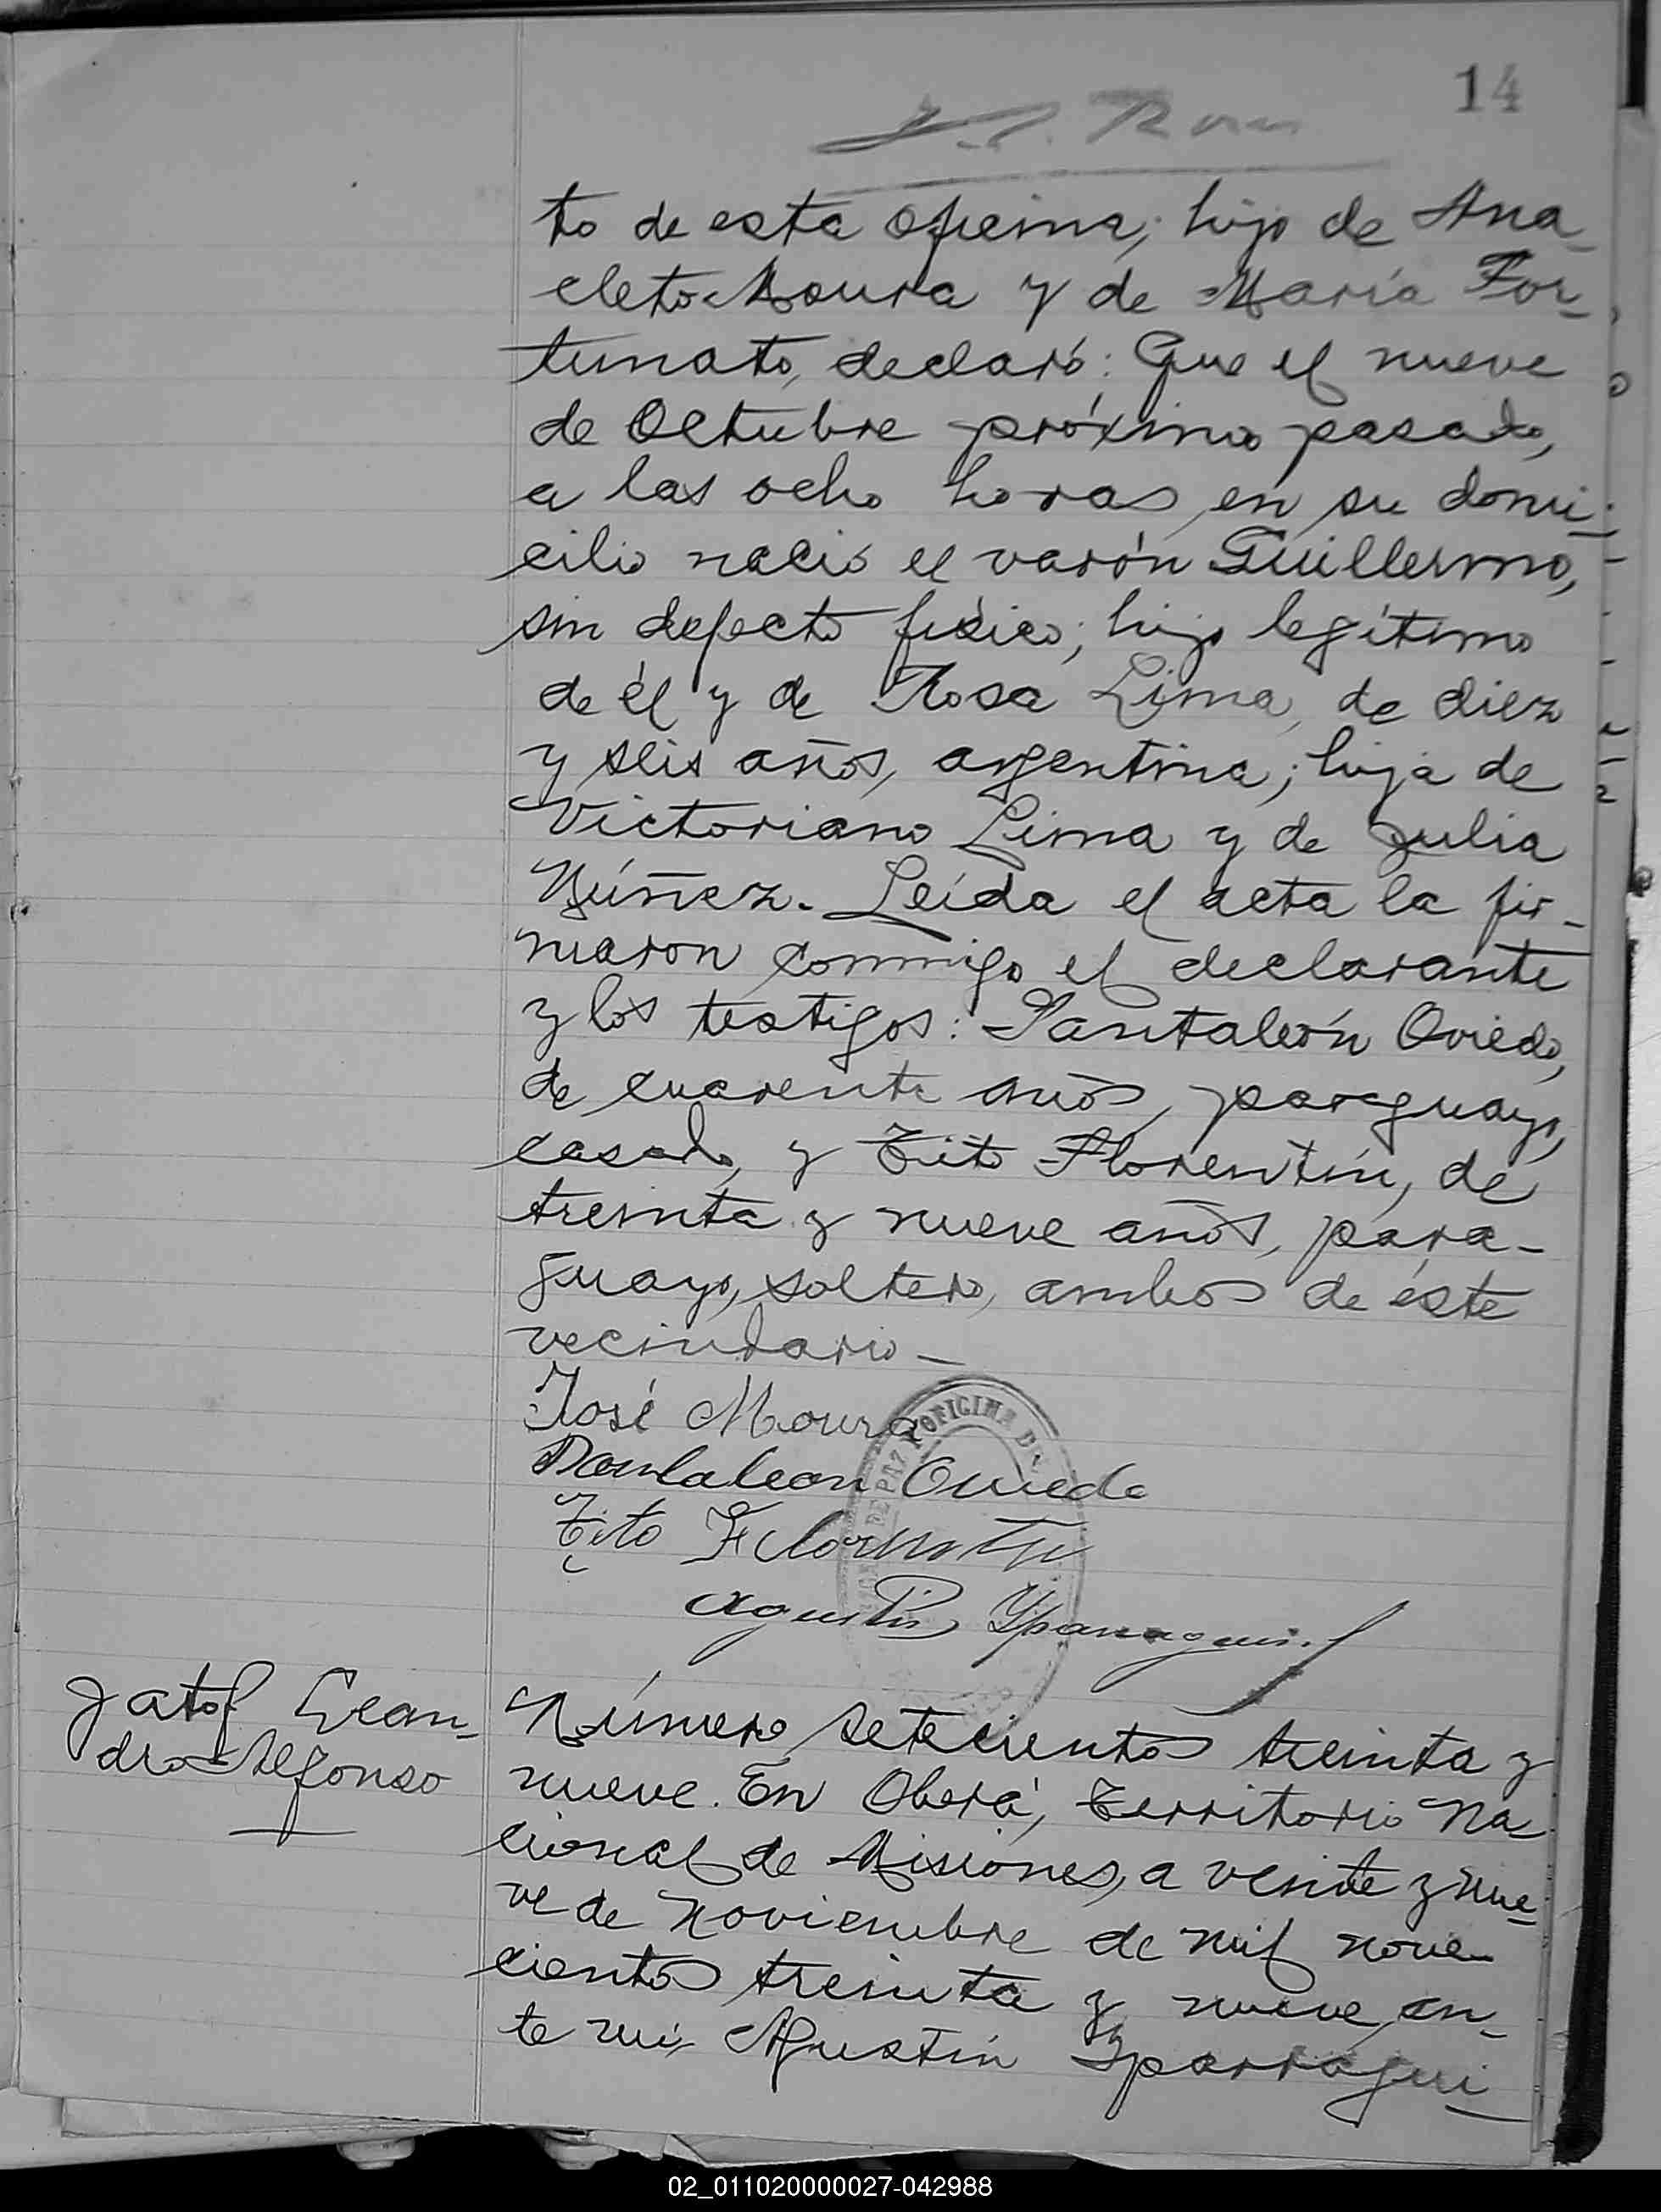 14
to de esta oficina; hijo de Ana-
cleto Moura y de María For-
tunato, declaró: Que el nueve
de Octubre próximo pasado,
a las ocho horas, en su domi-
cilio nació el varón Guillermo,
sin defecto físico; hijo legítimo
de él y de Rosa Lima, de diez
y seis años, argentina; hija de
Victoriano Lima y de Julia
Núñez. Leída el acta la fir-
maron conmigo el declarante
y los testigos: Pantaleón Oviedo,
de cuarenta años, paraguayo,
casado, y Tito Florentín, de
treinta y nueve años, para-
guayo, soltero, ambos de éste
vecindario-
José Moura
OFICINA DE
DE PAZ
Pantaleon Oviedo
Tito Florentin
Agustin Yparraguir
Jatof Lean-
dro Alfonso
Número setecientos treinta y
nueve. En Oberá, Territorio Na-
cional de Misiones, a veinte y nue-
ve de Noviembre de mil nove-
cientos treinta y nueve, an-
te mí, Agustín Yparragui-
02_011020000027-042988